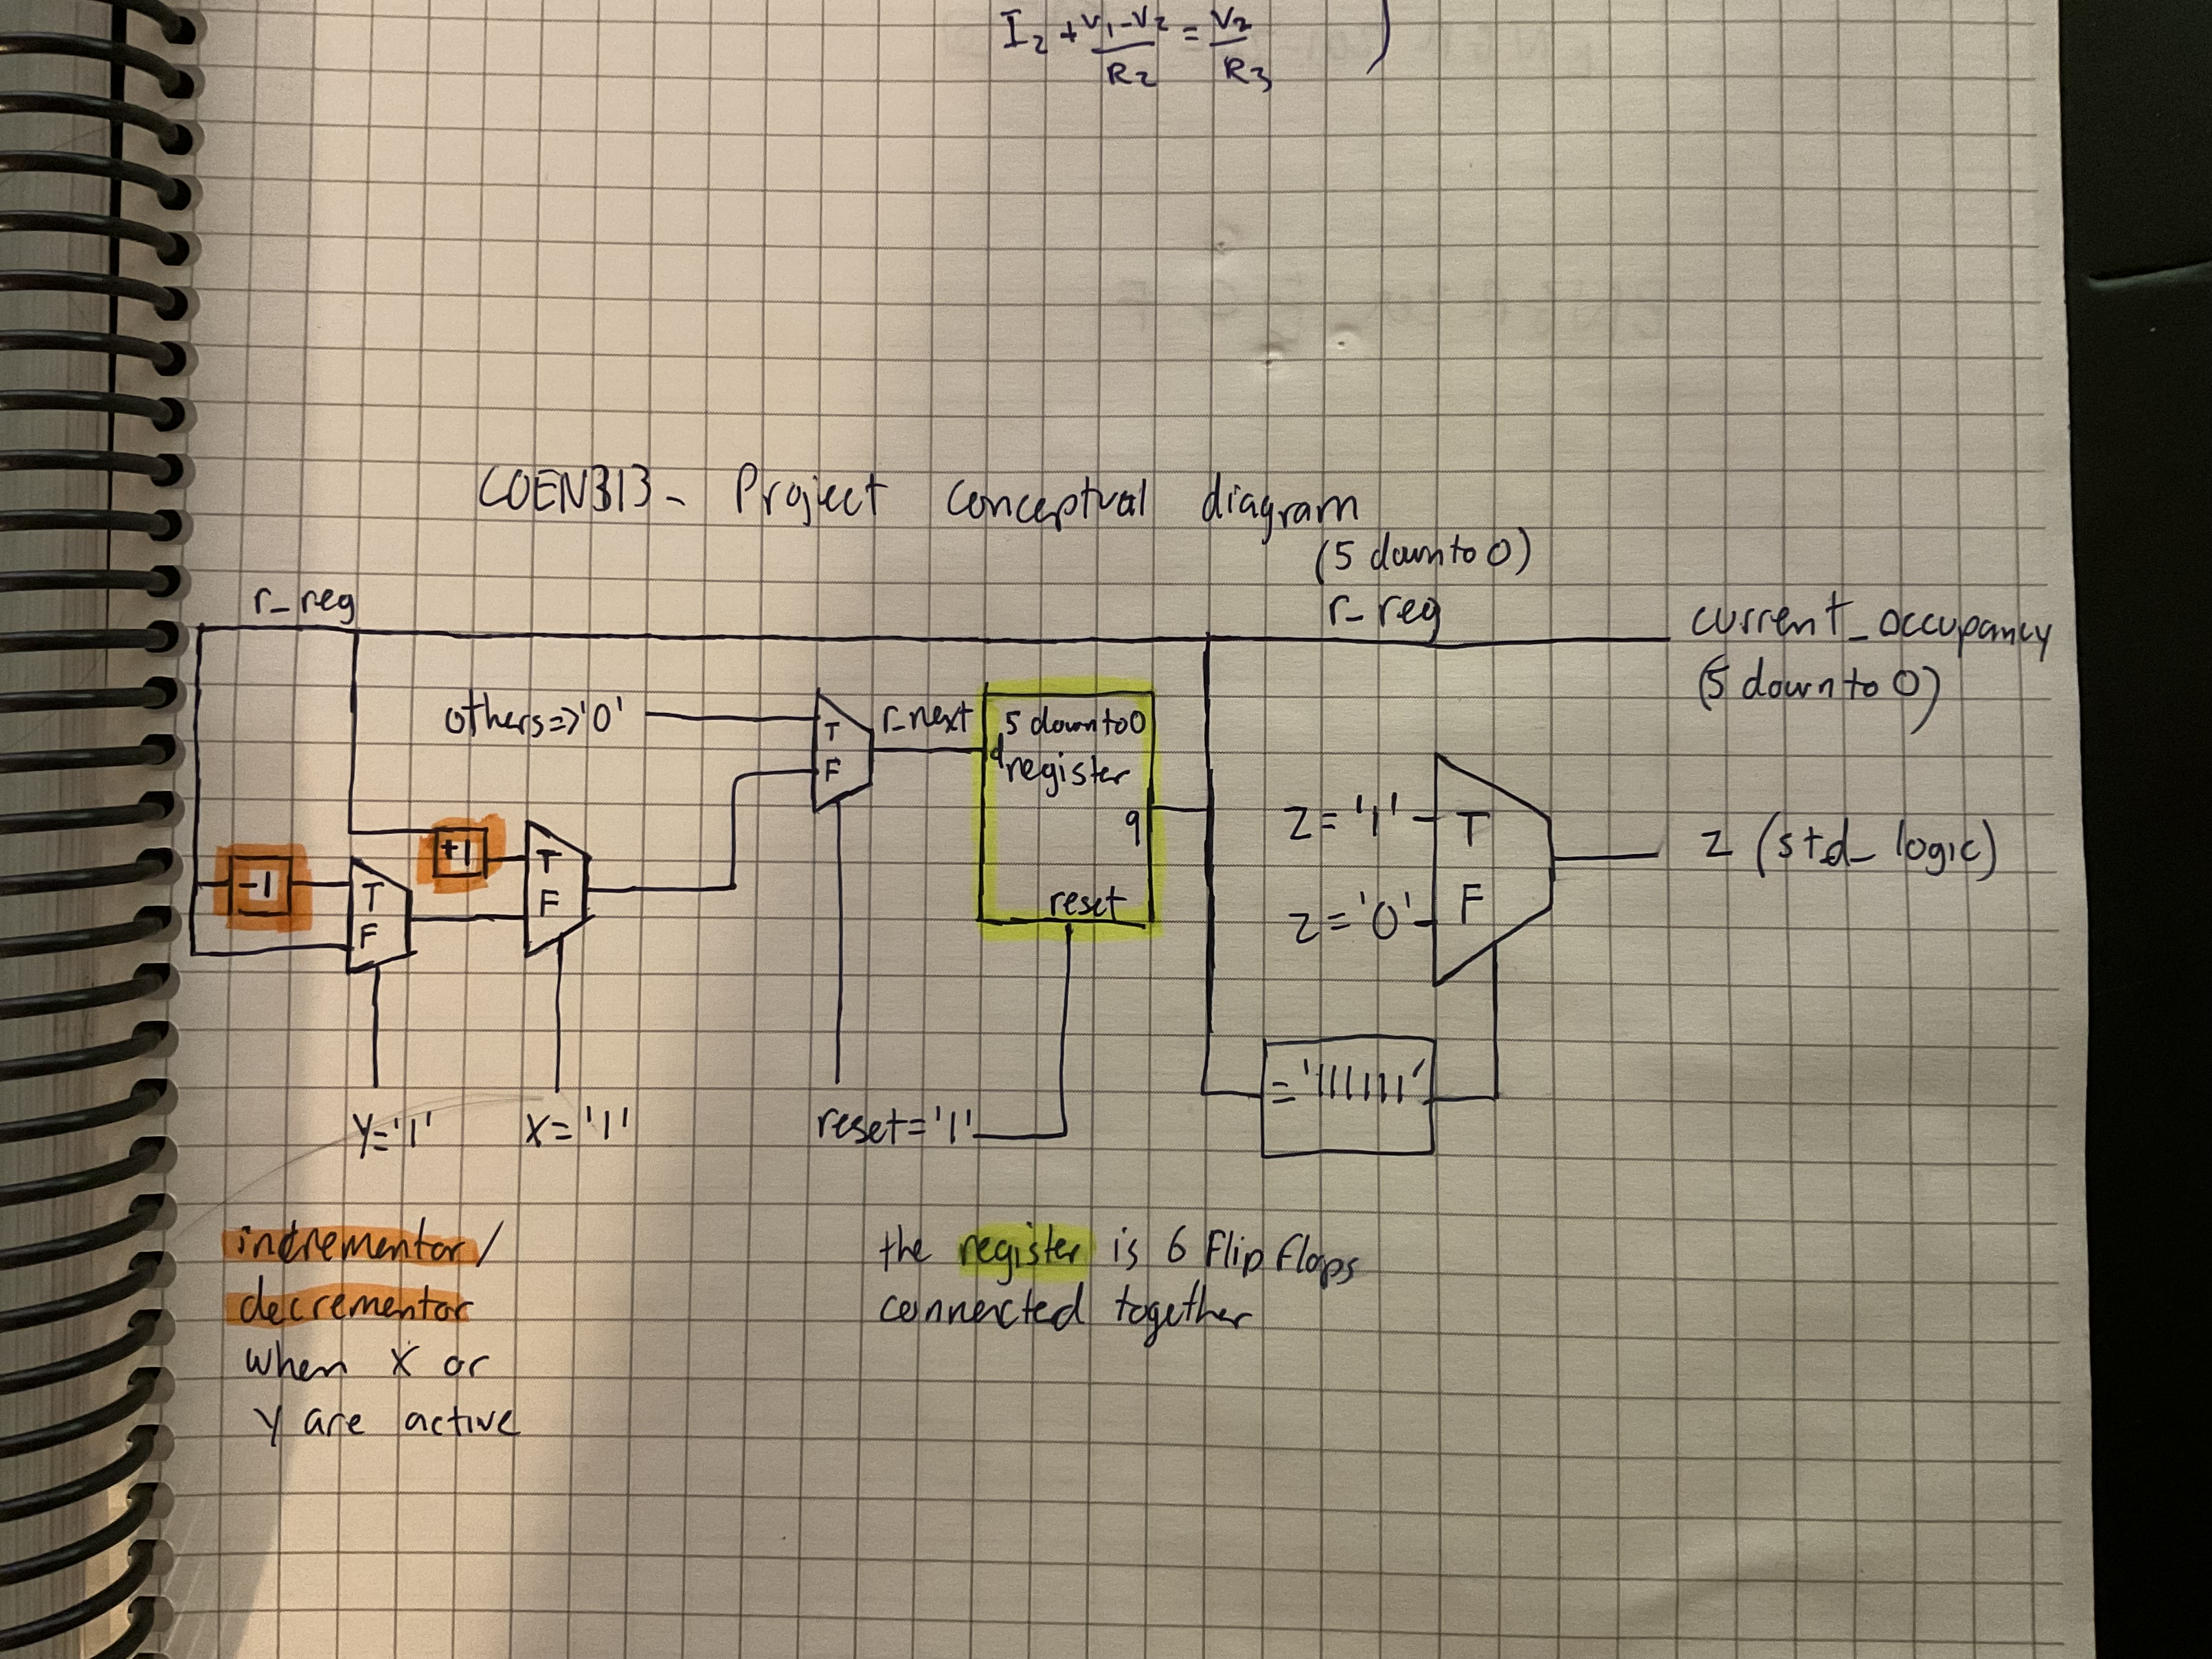 I₂ + V₁-V₂/R₂ = V₂/R₃ )
COEN313- Project conceptual diagram
(5 downto 0)
r_reg
r_reg
current_occupancy
(5 downto 0)
others=>'0'
T
F
r_next
5 downto 0
d
register
q
reset
-1
T
F
+1
T
F
z='1'
T
z='0'
F
z (std_logic)
='111111'
Y='1'
X='1'
reset='1'
incrementor/
decrementor
when X or
Y are active
the register is 6 Flip Flops
connected together